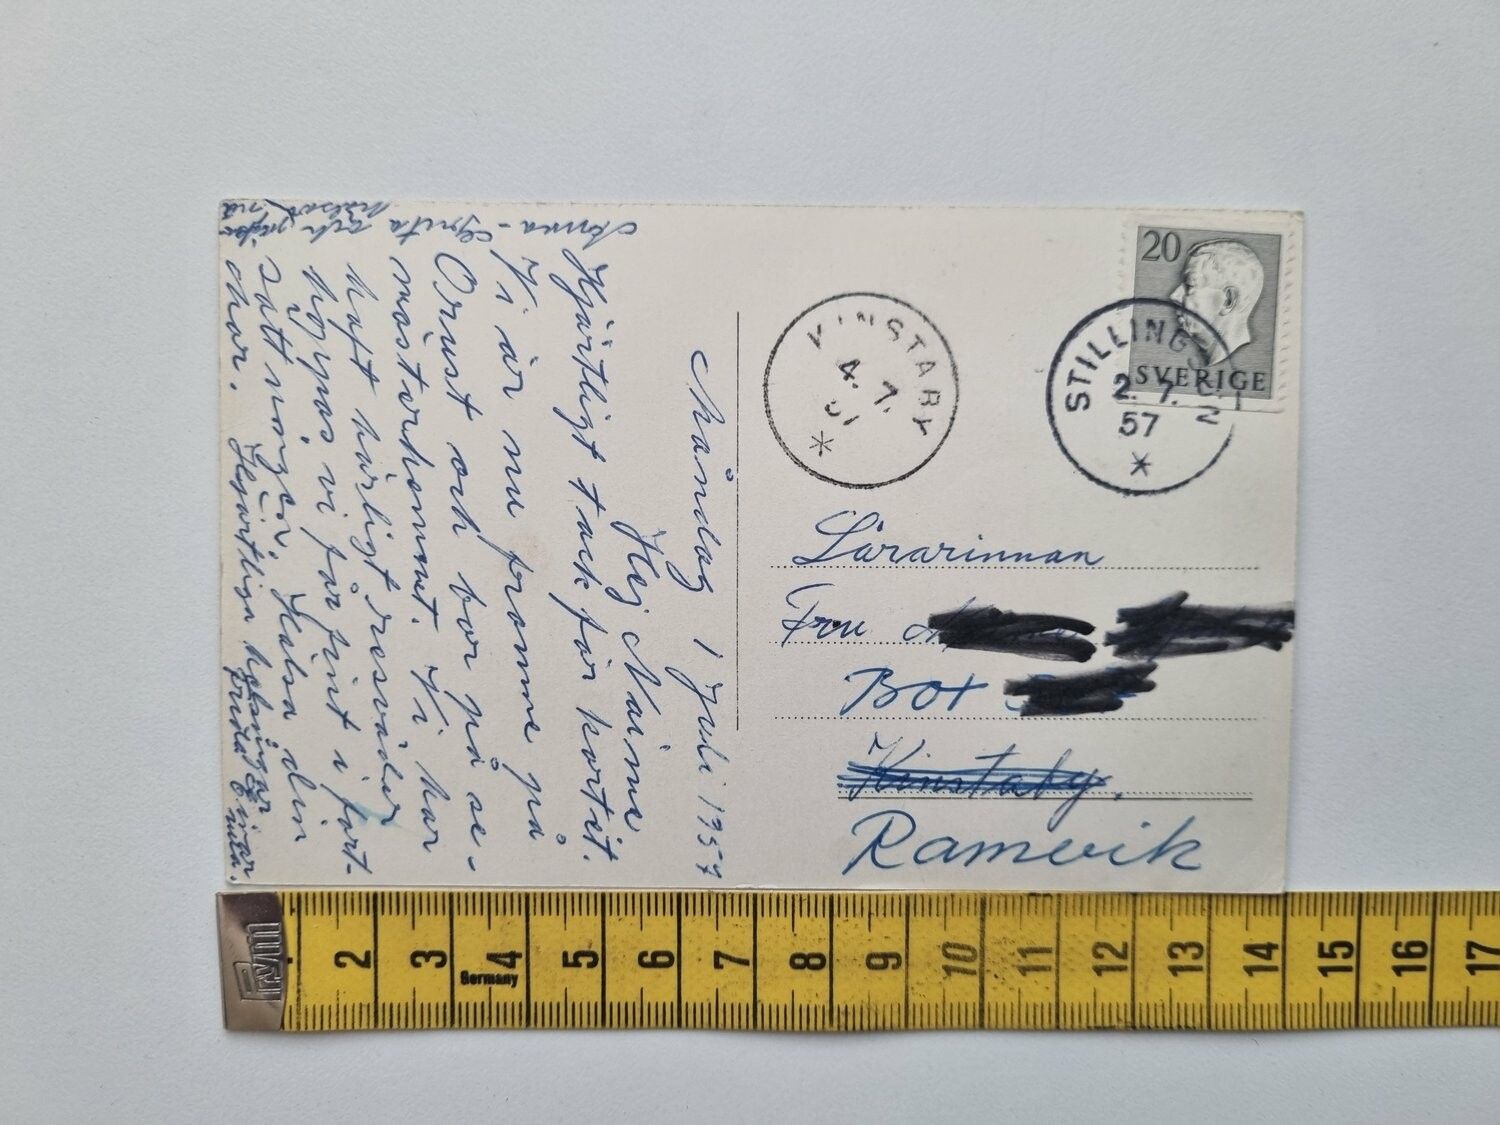 Måndag 1 Juli 1957
Hej Naima
Hjärtligt tack för kortet.
Vi är nu framme på
Orust och bor på se-
mesterhemmet. Vi har
haft härligt resväder
hoppas vi får fint i fort-
sättningen. Hälsa din
mor. Hjärtliga hälsningar
Frida Einar
Anna-Greta
och
hälsar
20
SVERIGE
STILLINGS
2.7.
57
KINSTABY
4.7.
57
Lärarinnan
Fru
Box
Kinstaby.
Ramvik
PRYM
2 3 4 5 6 7 8 9 10 11 12 13 14 15 16 17
Germany